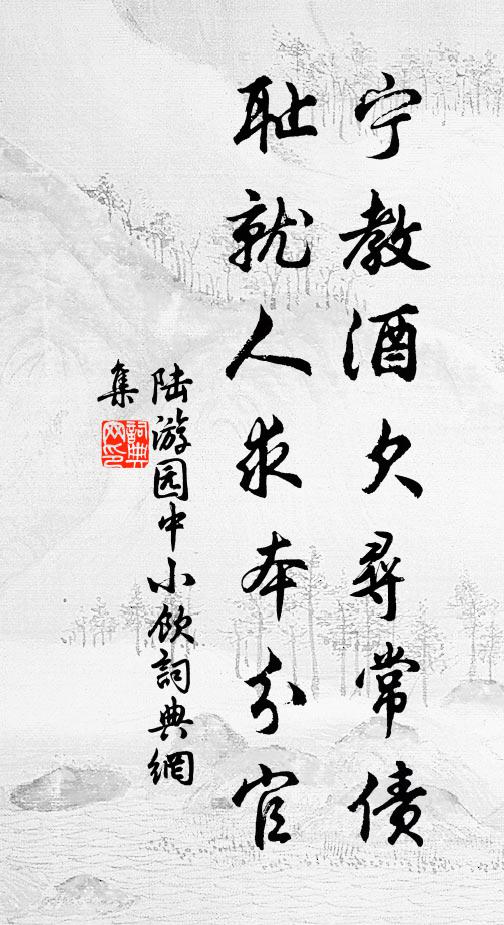 宁教酒欠寻常债
耻就人求本分官
陆游园中小饮詞典網
集
詞典网印